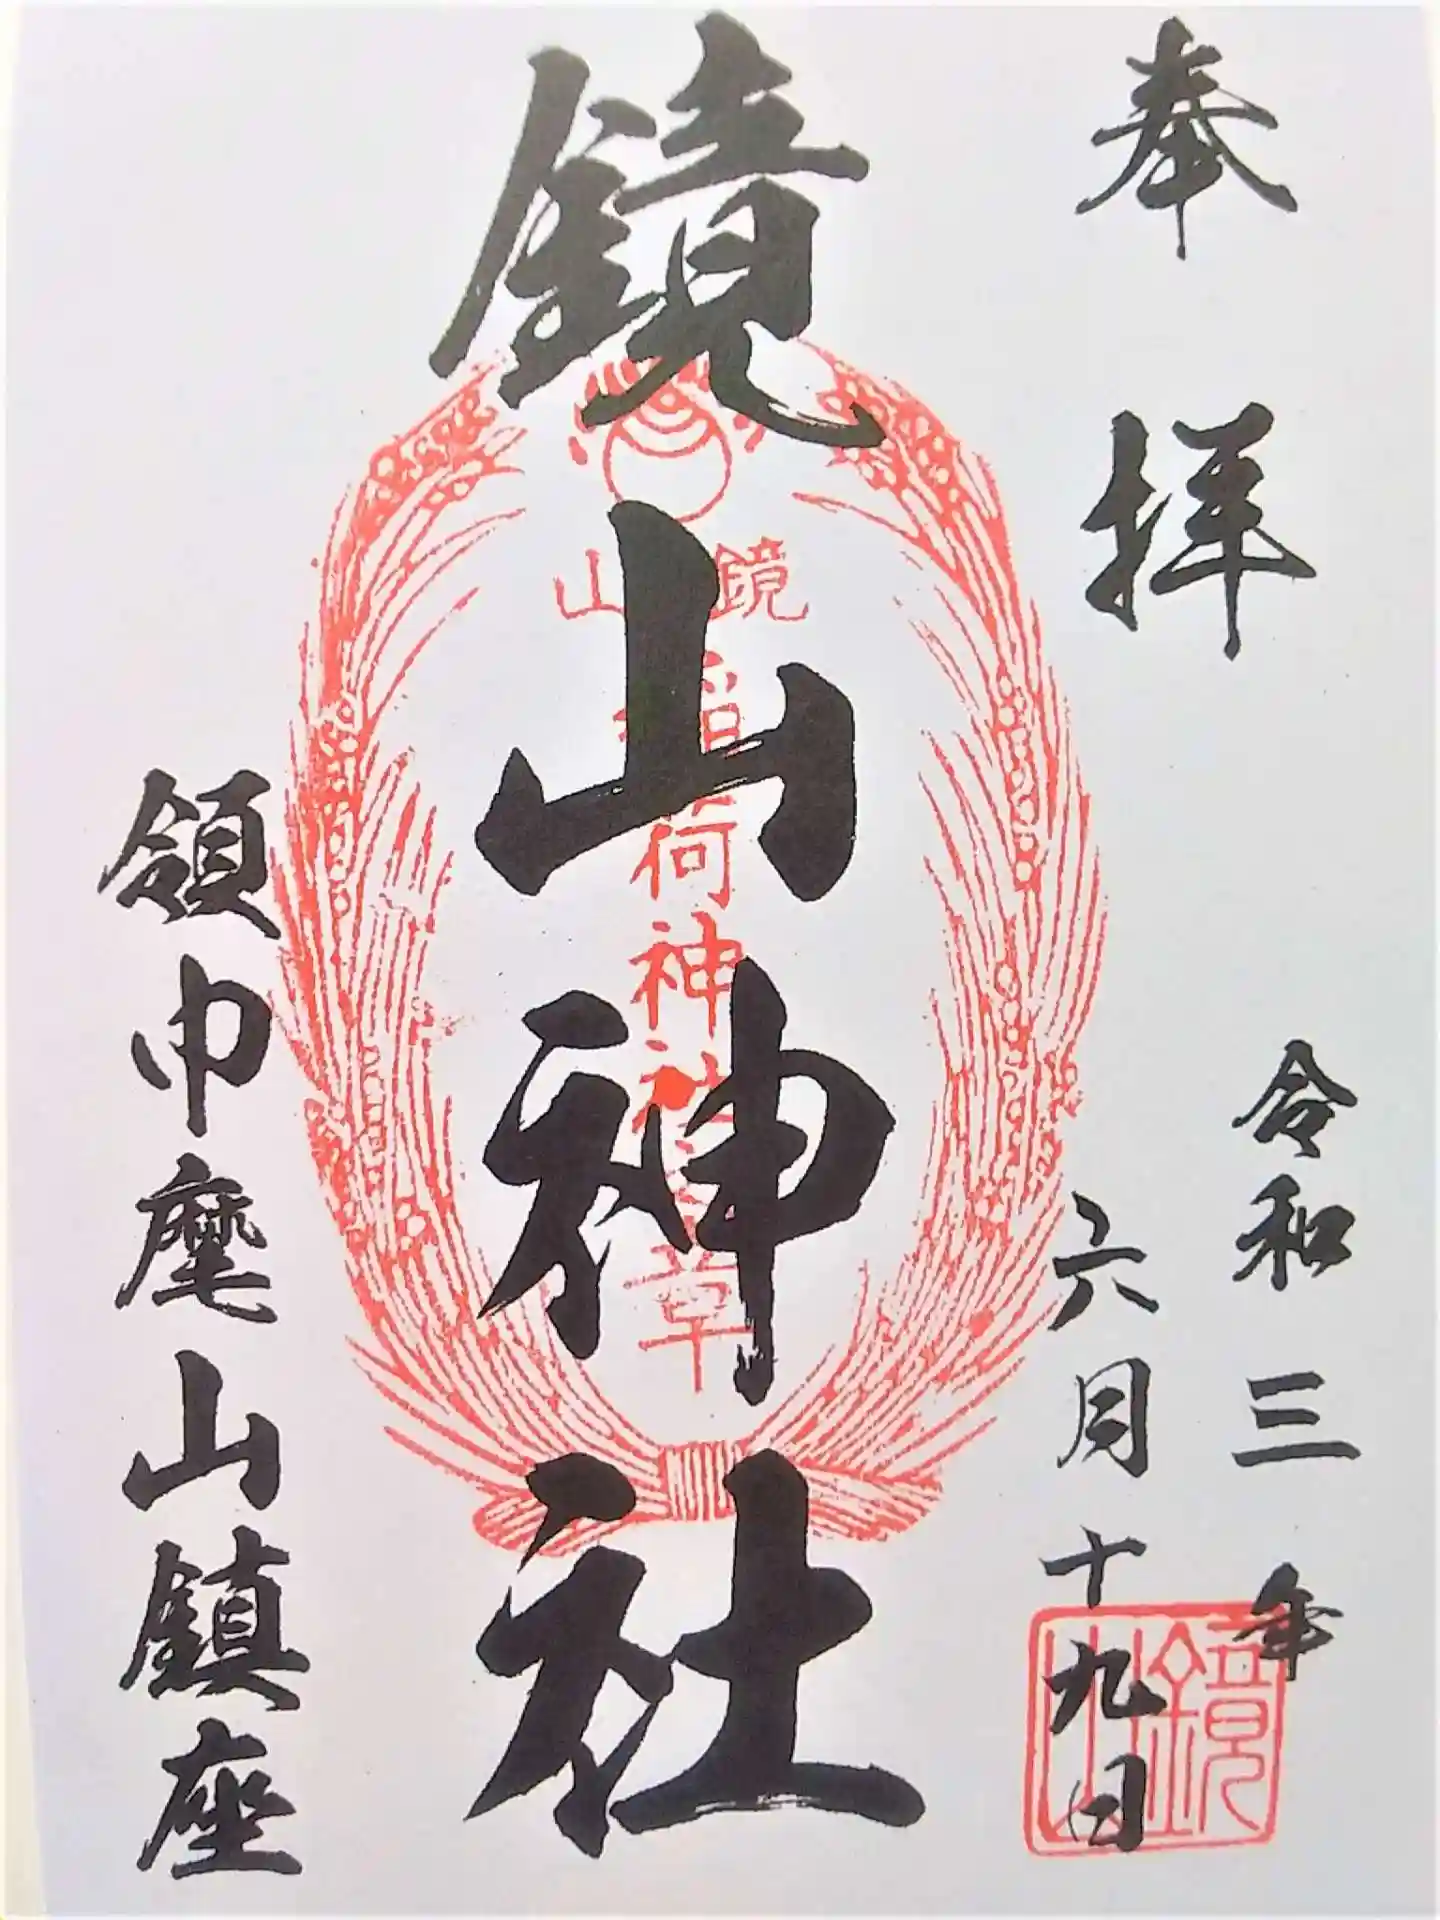 奉拝
令和三年
六月十九日
鏡山
鏡山神社
鏡山
稲荷神社
章
領巾麾山鎮座